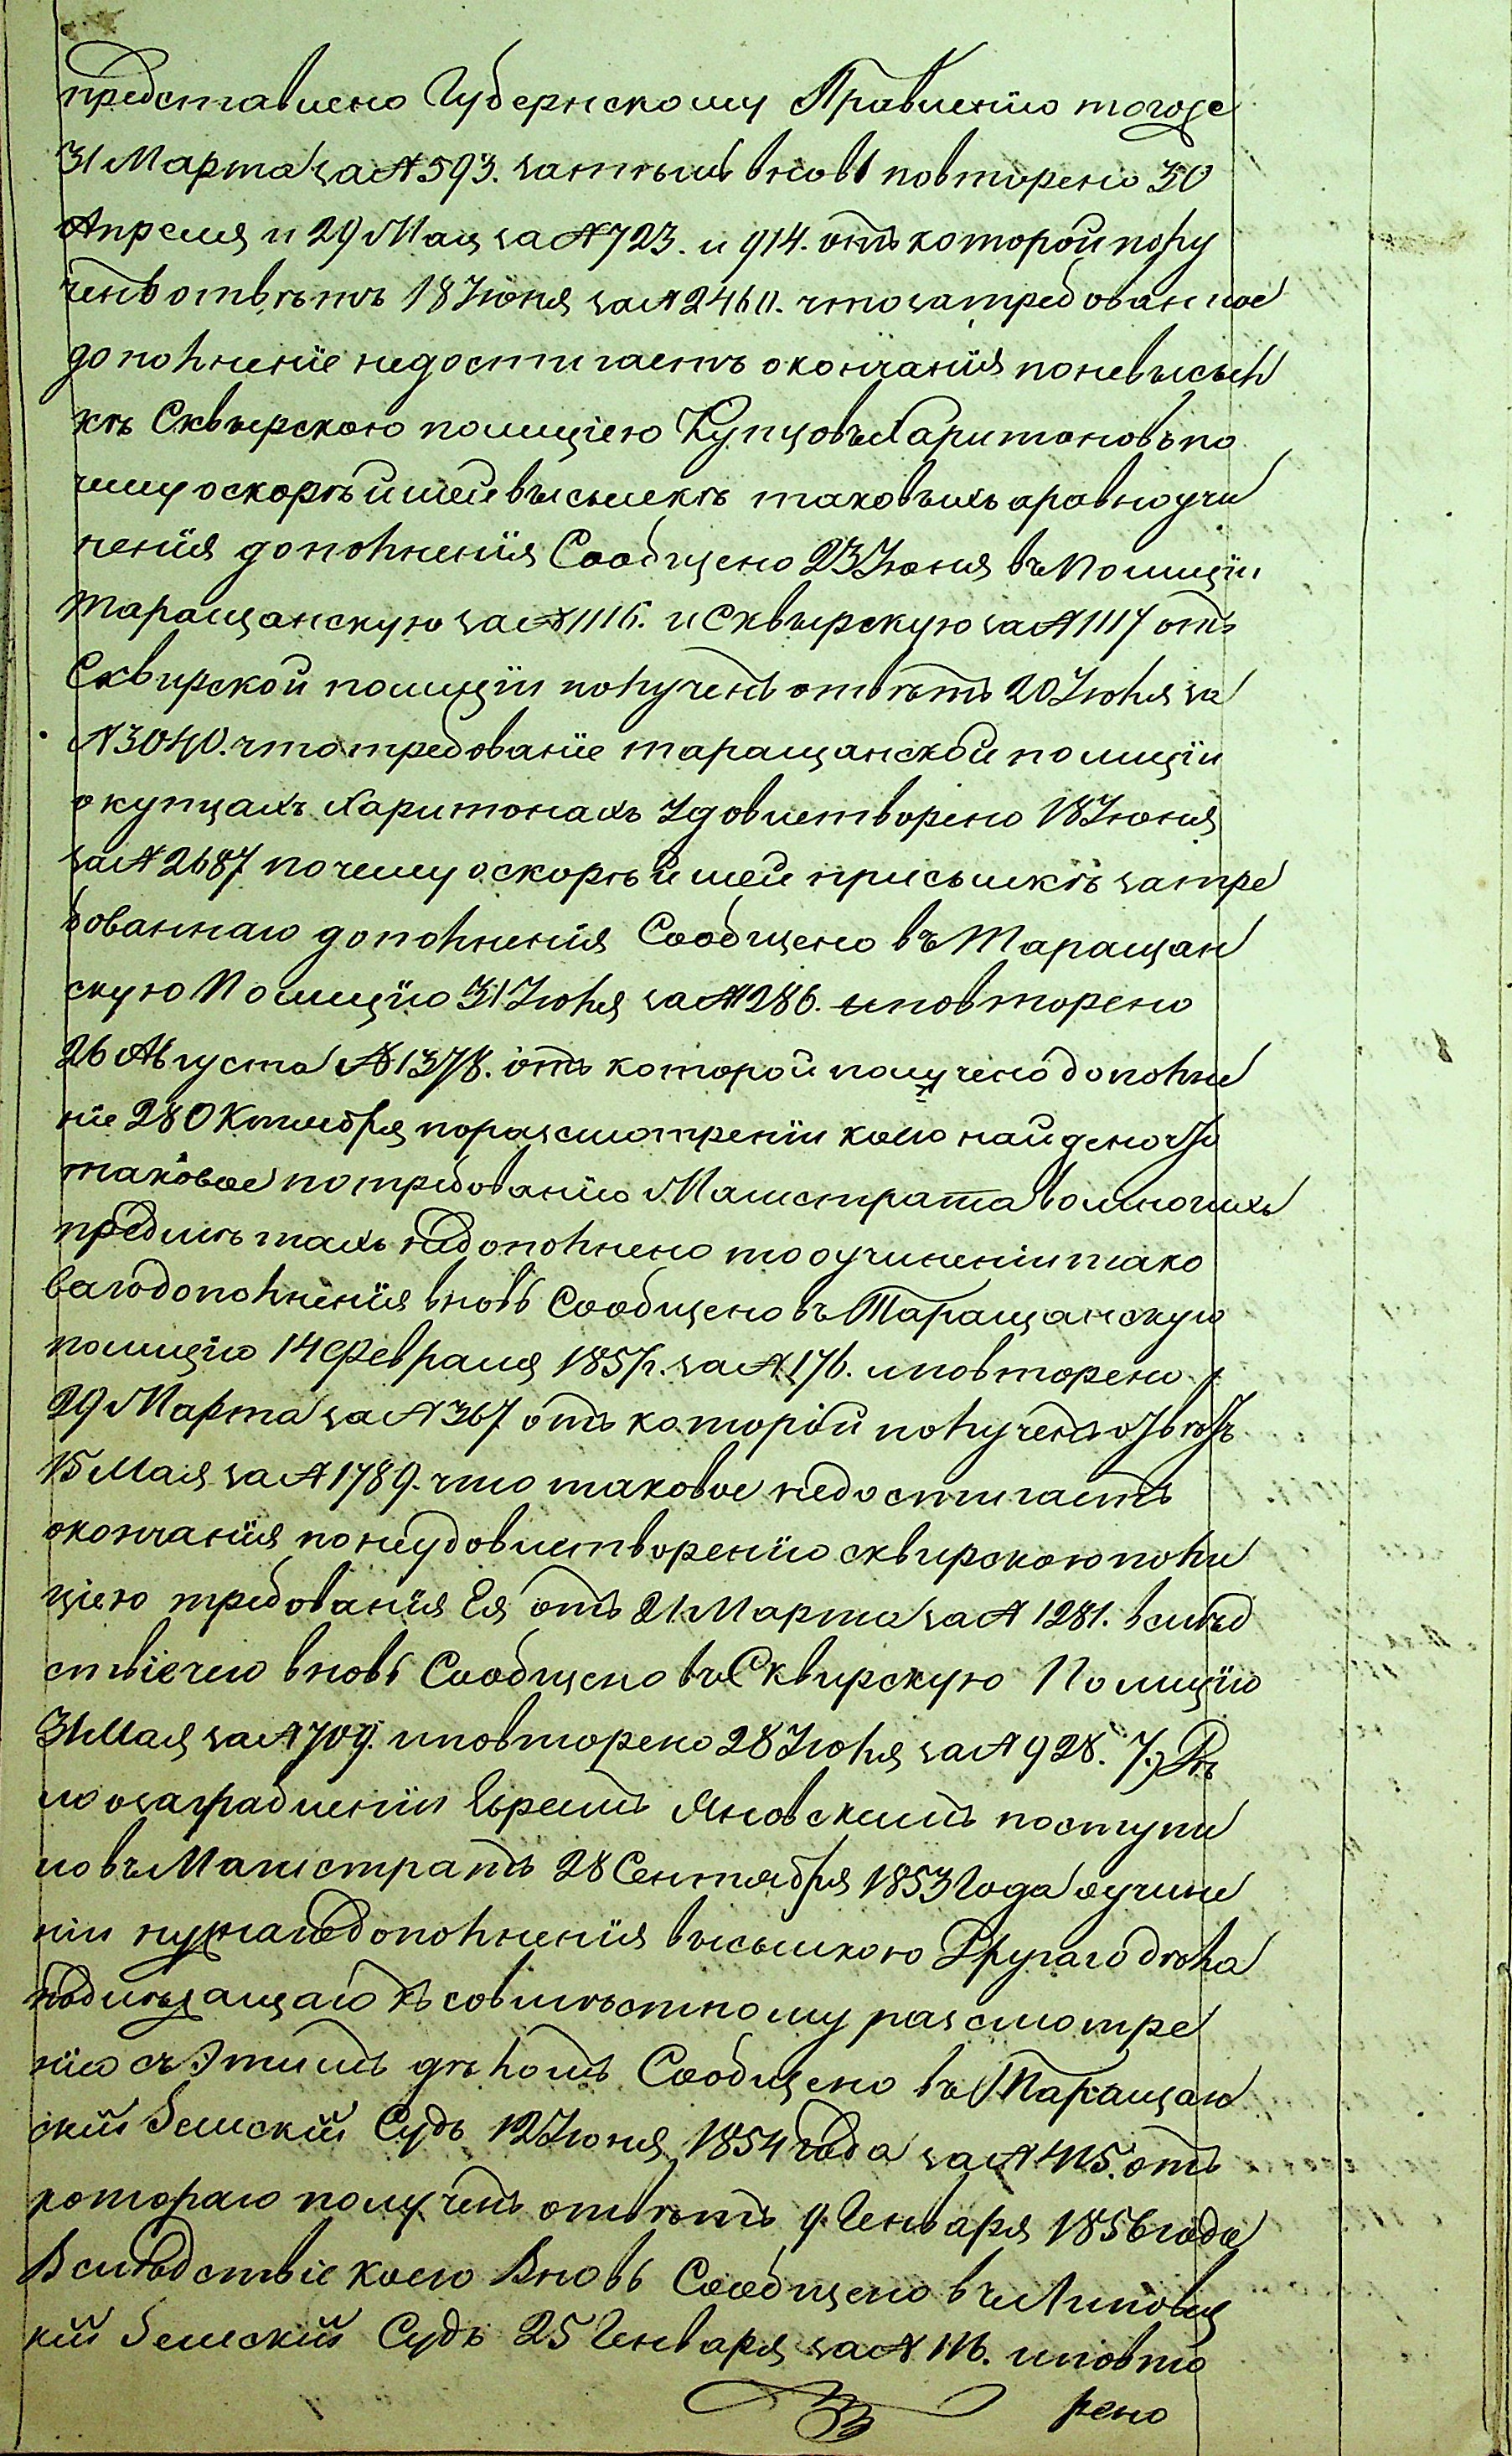 представлено Губернскому Правленію тогоже
31 Марта за № 593. затѣмъ вновь повторено 30
Апреля и 29 Мая за № 723. и 914. отъ которой полу
ченъ отвѣтъ 18 Іюня за № 2460. что затребованное
дополненіе недостигаетъ окончанія поневысыл
кѣ Сквырскою полиціею Купцовъ Харитоновъ по
чему оскорѣйшей высылкѣ таковыхъ аравно учи
ненія дополненія Сообщено 23 Іюня въ Полиціи
Таращанскую за № 1116. и Сквырскую за № 1117 отъ
Сквирской полиціи полученъ отвѣтъ 20 Іюля за
№ 3040. что требованіе таращанской полиціи
о купцахъ Харитонахъ Удовлетворено 18 Іюня
за № 2687 почему оскорѣйшей присылкѣ затре
бованнаго дополненія Сообщено въ Таращан
скую Полицію 31 Іюля за № 1286. иповторено
26 Августа № 1378. отъ которой получено дополне
ніе 28 Октября поразсмотреніи коего найдено что
таковое потребованію Магистрата вомногихъ
предмѣтахъ недополнено то оучиненіи тако
ваго дополненія вновь Сообщено въ Таращанскую
полицію 14 Февраля 1857 г. за № 176. иповторено
29 Марта за № 367 отъ которой полученъ отвѣтъ
15 Мая за № 1789. что таковое недостигаетъ
окончанія понеудовлетворенію сквирскою поли
ціею требованія Ея отъ 21 Марта за № 1281. вслѣд
ствіе чего вновь Сообщено въ Сквирскую Полицію
31 Мая за № 709. иповторено 28 Іюля за № 928. 7.) Дѣ
ло озаграбленіи Евреемъ Яновскимъ поступи
ло въ Магистратъ 28 Сентября 1853 Года оучине
ніи нужнаго дополненія высылкою Другаго дѣла
подлежащаго къ совмѣстному разсмотре
нію съ Этимъ дѣломъ Сообщено въ Таращан
скій Земскій Судъ 12 Іюня 1854 года за № 415. отъ
котораго полученъ отвѣтъ 9 Генваря 1856 года
Вслѣдствіе коего Вновь Сообщено въ Липовец
кій Земскій Судъ 25 Генваря за № 116. иповто
рено